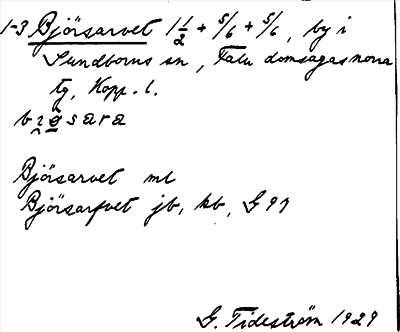 1-3 Björsarvet 1 1/2 + 5/6 + 5/6, by i
Sundborns sn, Falu domsagas norra
tg, Kopp. l.
Björsarvet ml
Björsarfvet jb, kb, G 97
G. Tideström 1929